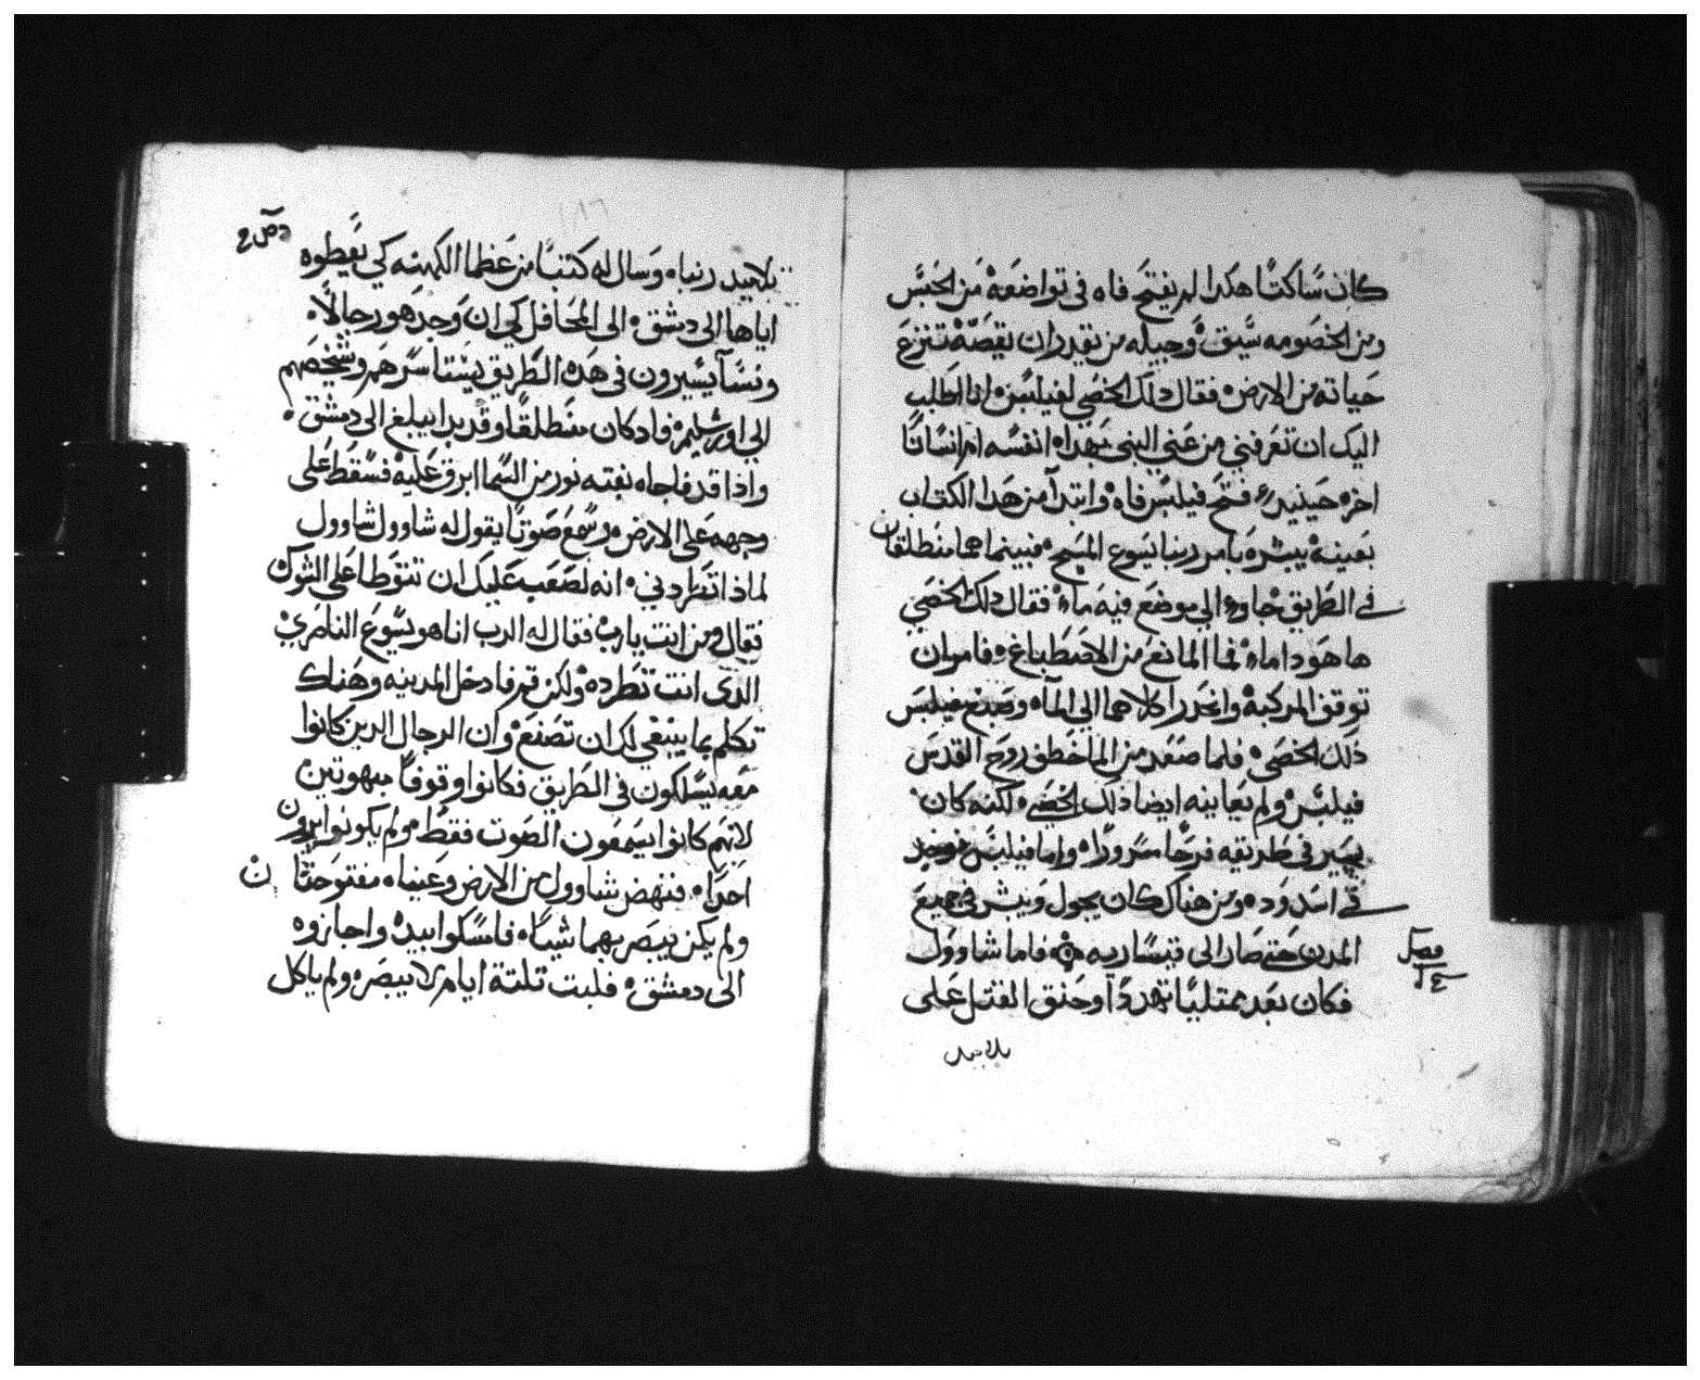 كان ساكتا هكدا لم يفتح فاه في تواضعه من الحبس
ومن الخصومه سيق وجيله من يقدر ان يقصه تنزع
حياته من الارض فقال دلك الخصي لفيلبس انا اطلب
اليك ان تعرفني من عني النبي بهدا انفسه ام انسانا
اخر حينيد فتح فيلبس فاه وابتدا من هدا الكتاب
بعينه يبشره بامر ربنا يسوع المسيح فبينما هما منطلقان
في الطريق جاوا الي موضع فيه ما فقال دلك الخصي
ها هودا ما فما المانع من الاصطباغ فامر ان
توقف المركبه وانحدرا كلاهما الي الما وصبغ فيلبس
ذلك الخصي فلما صعد من الما خطف روح القدس
فيلبس ولم يعاينه ايضا ذلك الخصي لكنه كان
يسير في طريقه فرحا مسرورا واما فيلبس فوجد
في اسدود ومن هناك كان يجول ويبشر في جميع
المدن حتي صار الى قيساريه فاما شاوول
فصل
فكان بعد ممتليا تهددا وحنق القتل على
تلاميد
تلاميد ربنا وسال له كتبا من عظما الكهنه كي يعطوه
اياها الى دمشق الى المحافل كي ان وجد هو رجالا
ونسا يسيرون في هده الطريق يستاسرهم ويشخصهم
الي اورشليم فاد كان منطلقا وقد بدا يبلغ الى دمشق
واذا قد فاجاه بغته نور من السما ابرق عليه فسقط على
وجهه على الارض وسمع صوتا يقول له شاوول شاوول
لماذا تطردني انه لصعب عليك ان تتوطا على الشوك
فقال ومن انت يا رب فقال له الرب انا هو يسوع الناصري
الدى انت تطرده ولكن قم فادخل المدينه وهناك
تكلم بما ينبغي لك ان تصنع وان الرجال الدين كانوا
معه يسلكون في الطريق فكانوا وقوفا مبهوتين
لانهم كانوا يسمعون الصوت فقط ولم يكونوا يرون
احدا فنهض شاوول من الارض وعيناه مفتوحتان
ولم يكن يبصر بهما شيا فامسكوا بيده واجازوه
الى دمشق فلبت تلتة ايام لا يبصر ولم ياكل